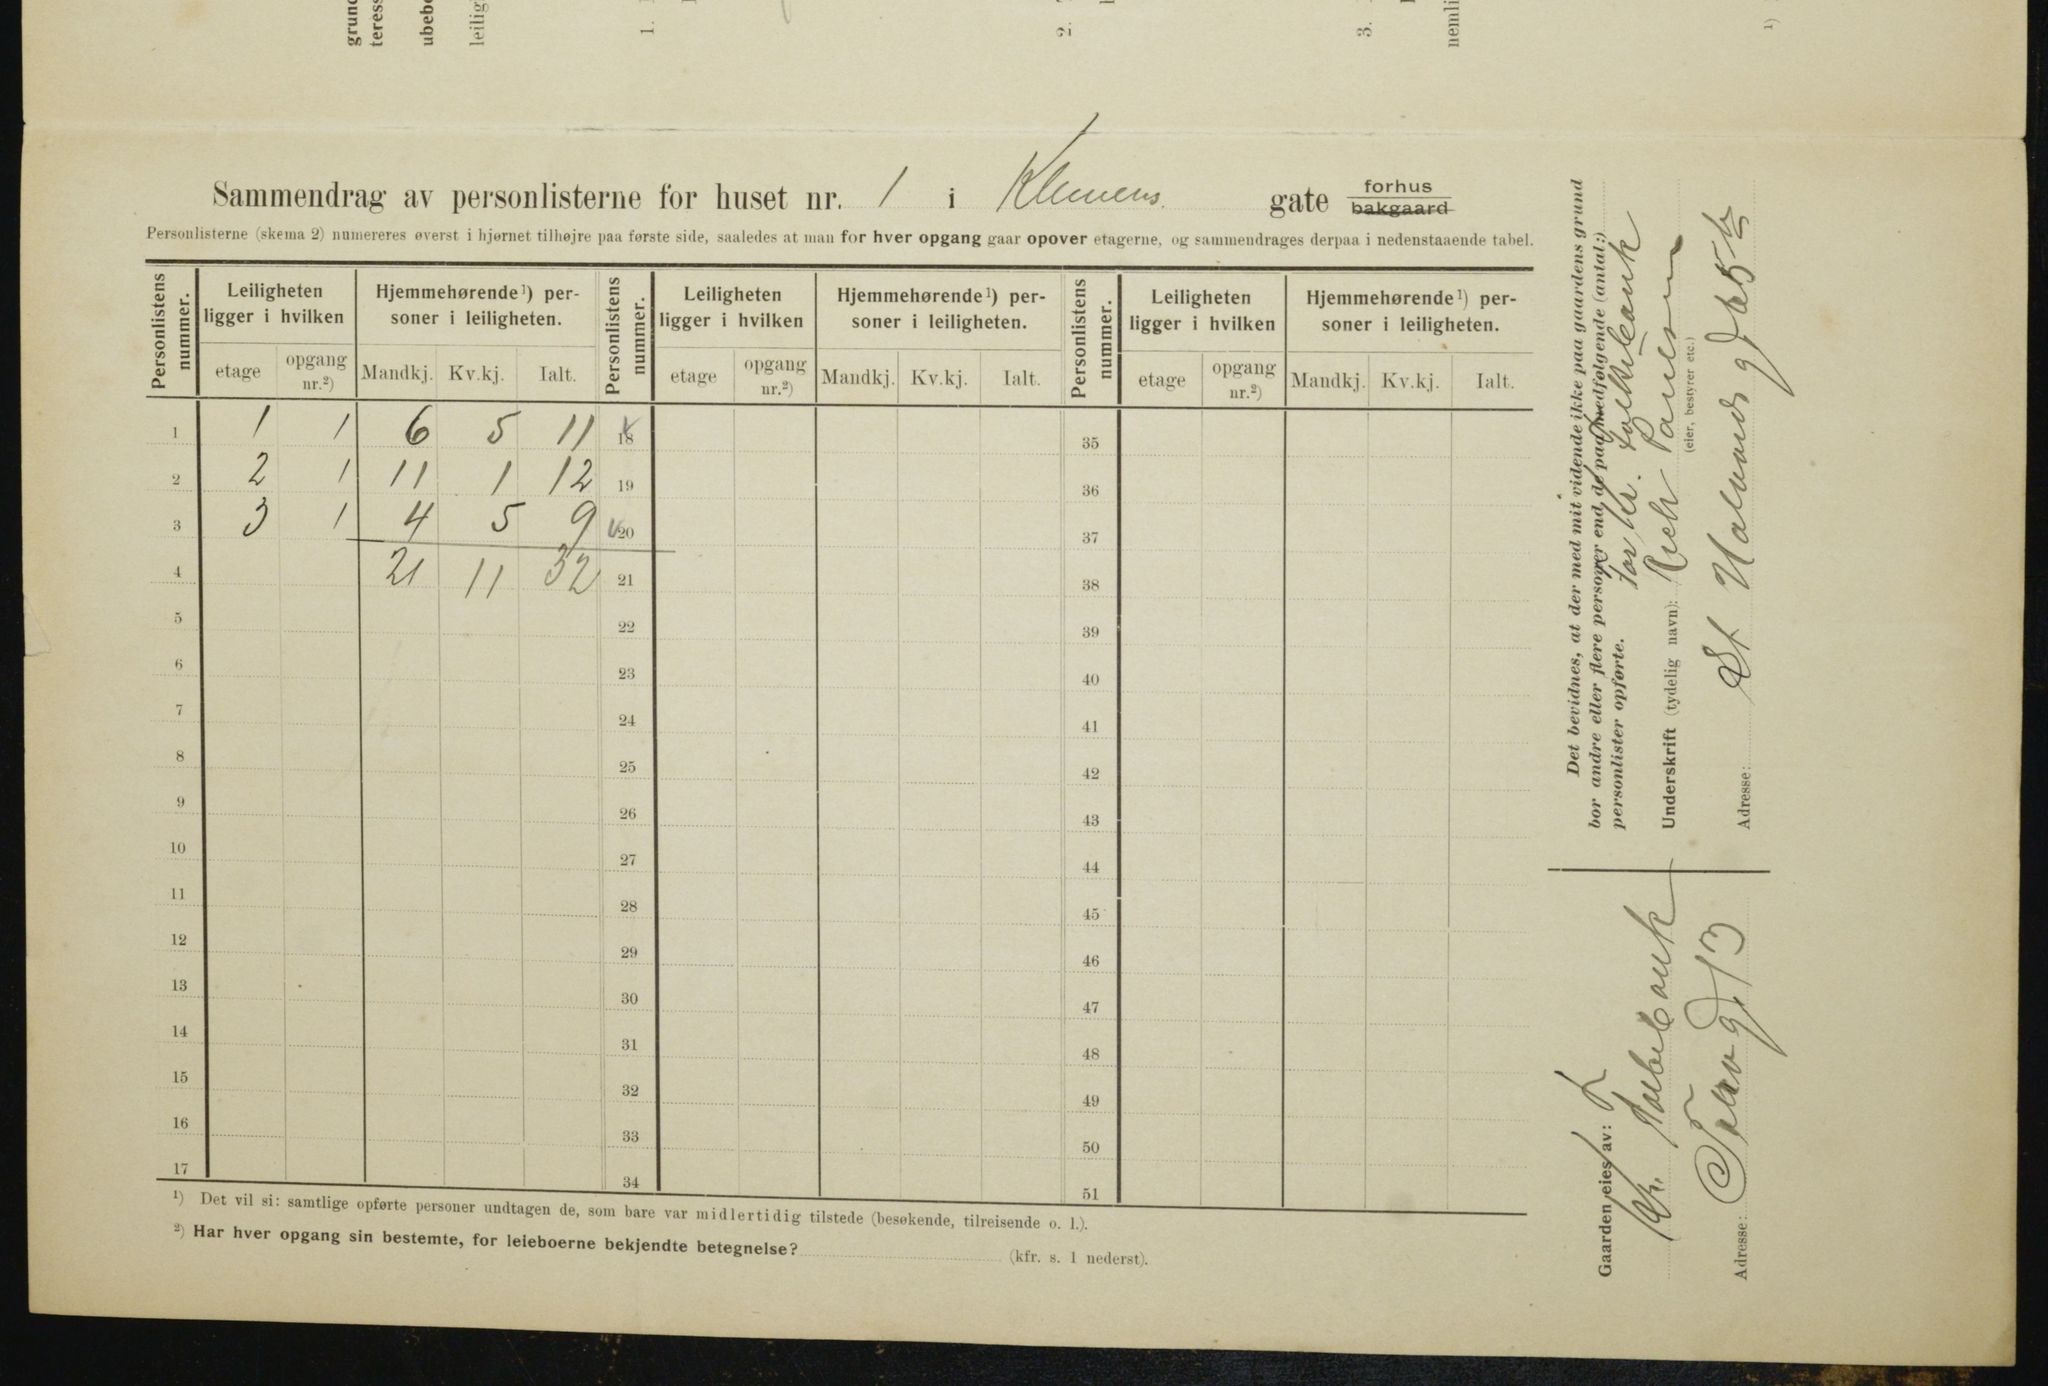 grund
teress
ubebo
leilig
1.
2.
3.
nemli
1)
Sammendrag av personlisterne for huset nr. 1 i Klemens gate forhus
bakgaard
Personlisterne (skema 2) numereres øverst i hjørnet tilhøjre paa første side, saaledes at man for hver opgang gaar opover etagerne, og sammendrages derpaa i nedenstaaende tabel.
Personlistens nummer. Leiligheten ligger i hvilken Hjemmehørende¹) personer i leiligheten. Personlistens nummer. Leiligheten ligger i hvilken Hjemmehørende¹) personer i leiligheten. Personlistens nummer. Leiligheten ligger i hvilken Hjemmehørende¹) personer i leiligheten.
etage opgang nr.²) Mandkj. Kv.kj. Ialt. etage opgang nr.²) Mandkj. Kv.kj. Ialt. etage opgang nr.²) Mandkj. Kv.kj. Ialt.
1 1 1 6 5 11 18 35
2 2 1 11 1 12 19 36
3 3 1 4 5 9 20 37
4 21 11 32 21 38
5 22 39
6 23 40
7 24 41
8 25 42
9 26 43
10 27 44
11 28 45
12 29 46
13 30 47
14 31 48
15 32 49
16 33 50
17 34 51
¹) Det vil si: samtlige opførte personer undtagen de, som bare var midlertidig tilstede (besøkende, tilreisende o. l.).
²) Har hver opgang sin bestemte, for leieboerne bekjendte betegnelse? (kfr. s. 1 nederst).
Det bevidnes, at der med mit vidende ikke paa gaardens grund
bor andre eller flere personer end de paa medfølgende (antal:)
personlister opførte.
for Kr. Folkebank
Underskrift (tydelig navn):
(eier, bestyrer etc.)
Adresse: St Halvards gt
Gaarden eies av:
Kr. Folkebank
Adresse: Torvgt 13